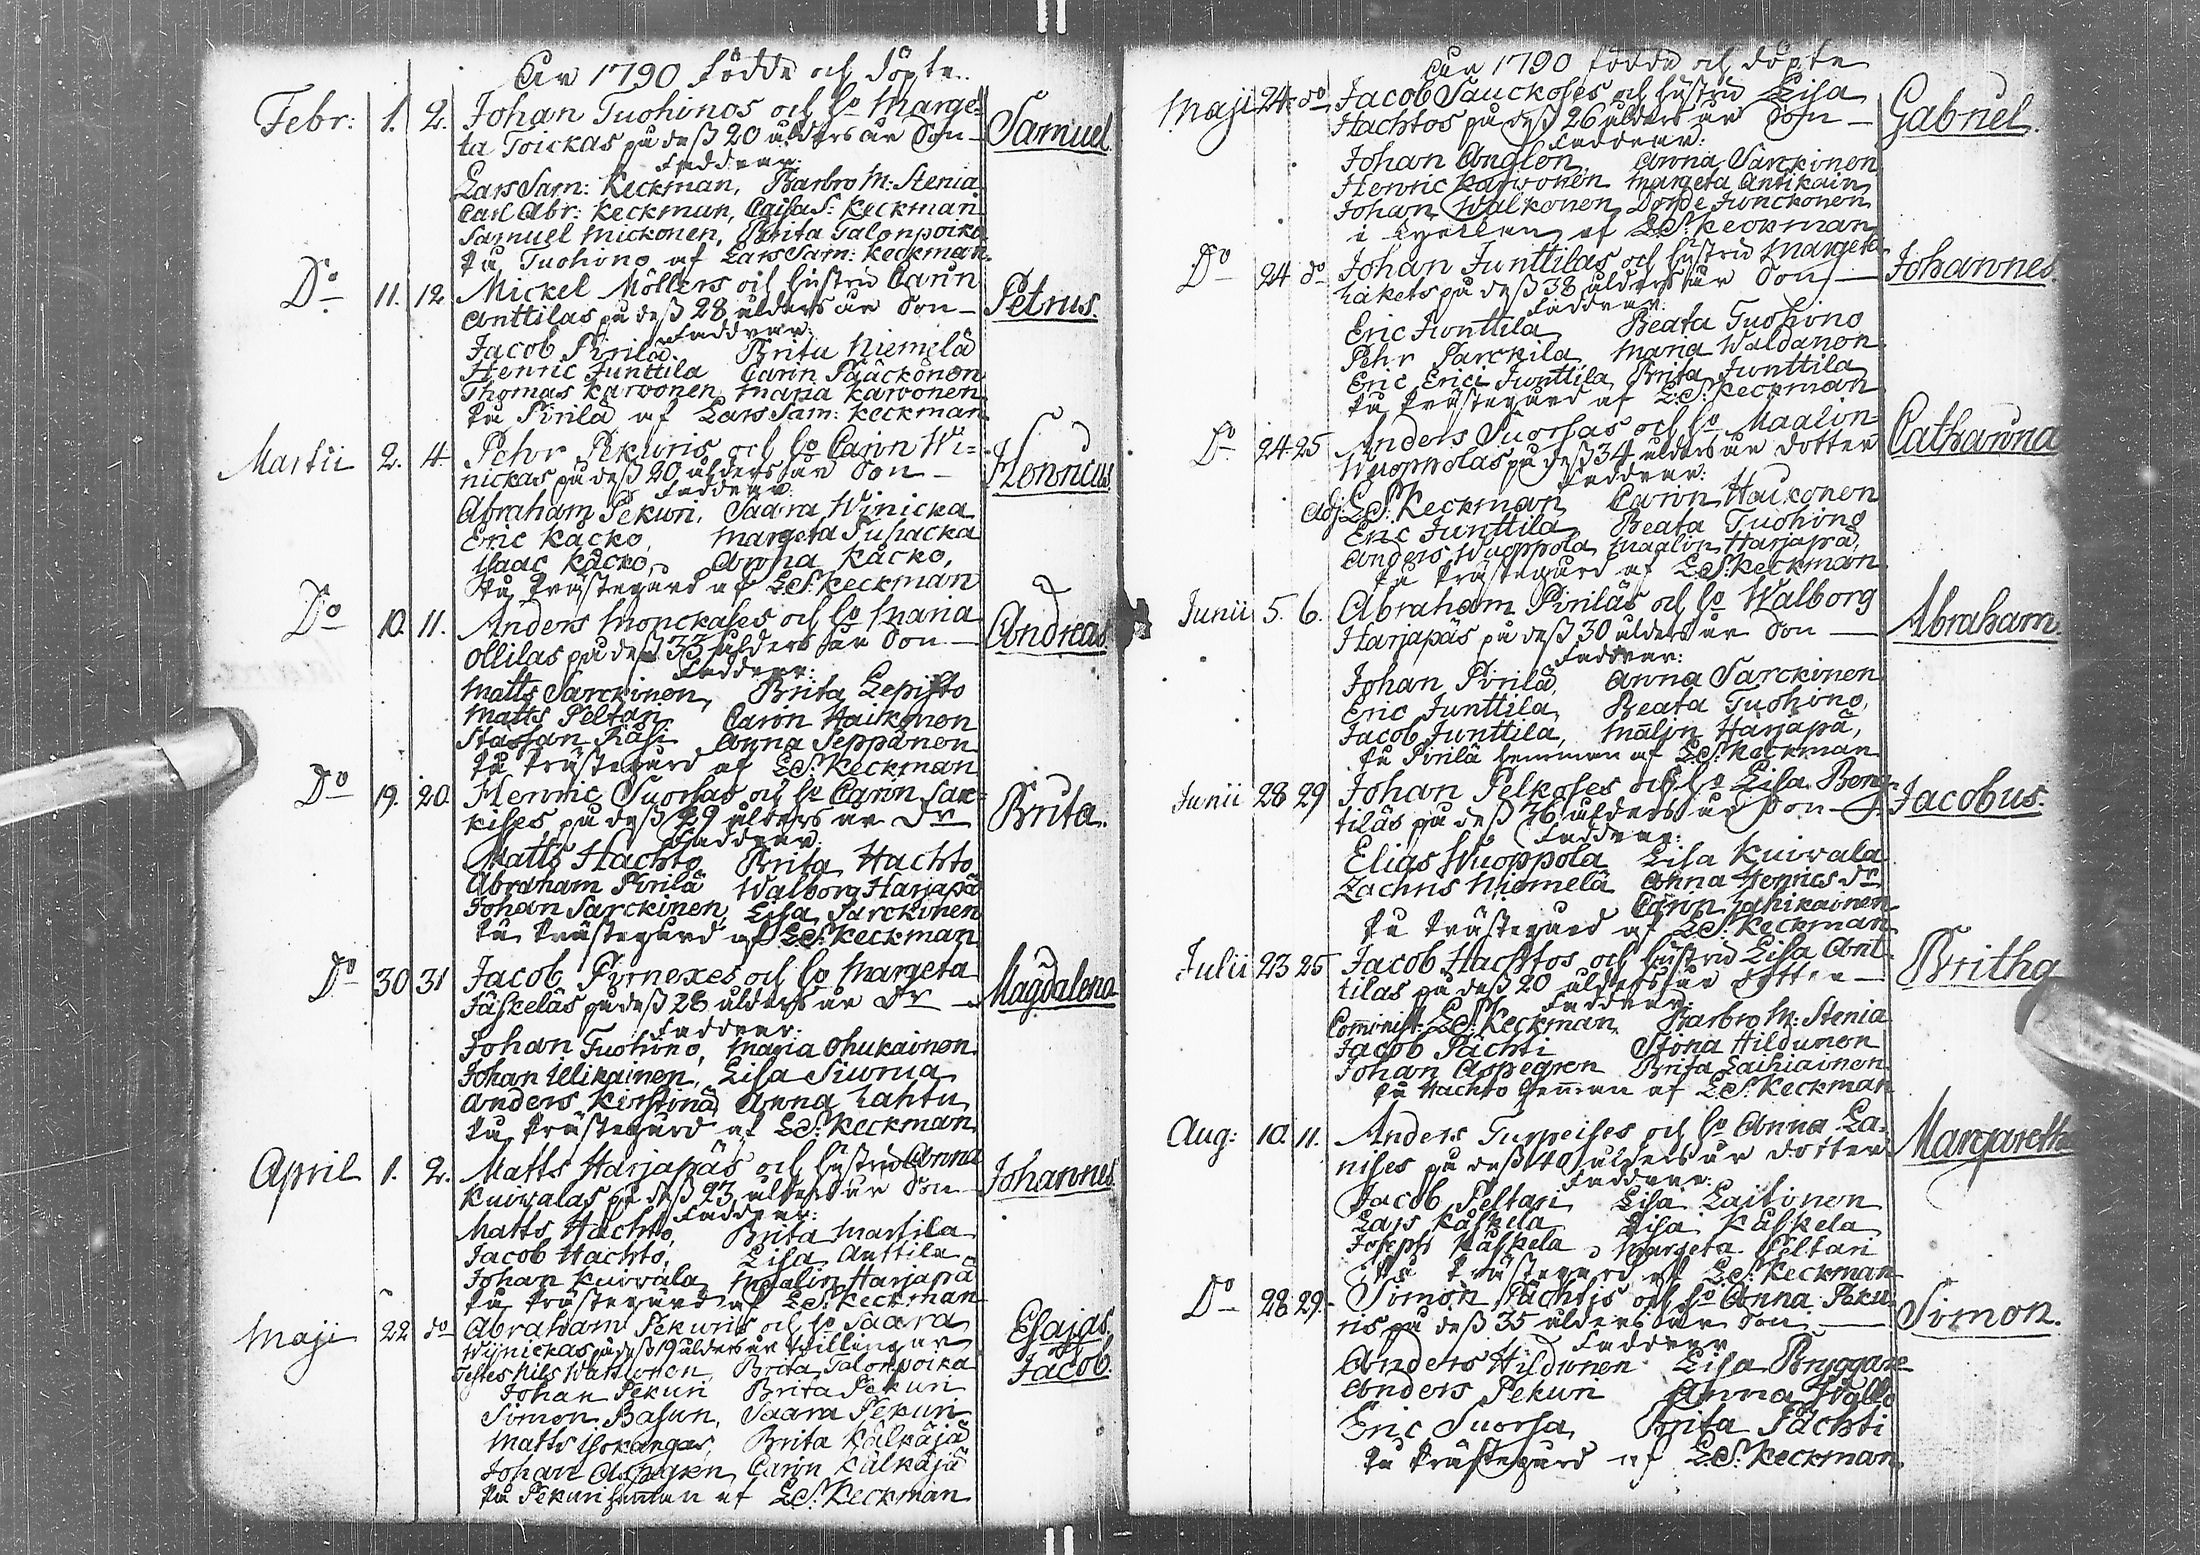 År 1790 födde och döpte.
Febr: 1. 2. Johan Tuohinos och ho Marge=
ta Toickas på deß 20 ålders år Son — Samuel
Faddrar:
Lars Sam: Keckman, Barbro M: Stenia
Carl Abr: Keckman, Cajsa S: Keckman
Samuel Mickonen, Brita Talonpoika
På Tuohino af Lars Sam: Keckman
Do 11. 12 Mickel Möllers och hustru Carin
Anttilas på deß 28 ålders år Son — Petrus.
Faddrar:
Jacob Pirilä Brita Niemelä
Henric Junttila Carin Pääckönen
Thomas Karvonen Maria Karvonen
På Pirilä af Lars Sam: Keckman
Martii 2. 4. Pehr Pekuris och ho Carin Wi=
nickas på deß 20 ålders år Son — Henricus
Faddrar:
Abraham Pekuri, Saara Winicka
Eric Kacko, Margeta
Isaac Kacko, Anna Kacko,
På Prästegård af L:S: Keckman
Do 10. 11. Anders Monckases och ho Maria
Ollilas på deß 33 ålders år Son — Andreas
Faddrar:
Matts Sarckinen, Brita Lepistö
Matts Peltari Carin Haikonen
Staffan Räsi Anna Seppänen
På Prästegård af L:S: Keckman
Do 19. 20. Henric Suorsas och ho Carin Sar=
kises på deß 29 ålders år Dr Brita.
Faddrar:
Matts Hachto Brita Hachto
Abraham Pirilä Walborg Harjapä
Johan Sarckinen, Lisa Sarckinen
På Prästegård af L:S: Keckman
Do 30 31 Jacob Pyrnexes och ho Margeta
Jäskeläs på deß 28 ålders år Dr — Magdalena
Faddrar:
Johan Tuohino, Maria Ohukainen
Johan Ulikainen, Lisa Siurua
Anders Kerstinä Anna Lahtu
På Prästegård af L:S: Keckman
April 1. 2. Matts Harjapäs och hustru Anna
Kuivalas på deß 23 ålders år Son Johannes.
Faddrar:
Matts Hachto, Brita Marttila
Jacob Hachto, Lisa Anttila
Johan Kuivala Maalin Harjapä
På Prästegård af L:S: Keckman
Maji 22 do Abraham Pekuris och ho Saara
Wijnickas på deß 19 ålders år Twillingar Esajas och
Testes Nils Brita Talonpoika Jacob.
Johan Pekuri Brita Pekuri
Simon Basun, Saara Pekuri
Matts Brita Kälkäjä
Johan Aspegren Carin Kälkäjä
På Pekuri hemman af L:S: Keckman
År 1790 födde och döpte
Maji 24 do Jacob Sauckoses och hustru Lisa
Hachtos på deß 26 ålders år Son — Gabriel.
Faddrar:
Johan Anglen, Anna Sarckinen
Henric Karvonen Margeta Antikain
Johan Walkonen Dorde Junckonen
i Kyrckan af L:S: Keckman
Do 24 do Johan Junttilas och hustru Margeta
Lakets på deß 38 ålders år Son — Johannes
Faddrar:
Eric Junttila Beata Tuohino
Pehr Parckila Maria Waldanen
Eric Erici Junttila Brita Junttila
På Prästegård af L:S: Keckman
Do 24 25 Anders Suorsas och ho Maalin
Wuoppolas på deß 34 ålders år dotter Catharina
Faddrar:
Adj: L:S: Keckman Carin Haukonen
Eric Junttila Beata Tuohino
Anders Wuoppola Maalin Harjapä,
På Prästegård af L:S: Keckman
Junii 5. 6. Abraham Piriläs och ho Walborg
Harjapäs på deß 30 ålders år Son — Abraham.
Faddrar:
Johan Pirilä Anna Sarckinen
Eric Junttila Beata Tuohino,
Jacob Junttila, Malin Harjapä,
På Pirilä hemman af L:S: Keckman
Junii 28 29 Johan Pelkoses och ho Lisa Beng=
tiläs på deß 36 ålders år Son — Jacobus.
Faddrar:
Elias Wuoppola Lisa Kuivala
Zachris Niemelä Anna Henrics dr
Carin Jahikainen
På Prästegård af L:S: Keckman
Julii 23 25 Jacob Hachtos och hustru Lisa Ant=
tilas på deß 20 ålders år dotter — Britha
Faddrar:
Comminist: L:S: Keckman, Barbro M: Stenia
Jacob Pächti Stina Hildunen
Johan Aspegren Brita Laihiainen
På Hachto hemman af L:S: Keckman
Aug: 10. 11. Anders Turpeises och ho Anna La=
nises på deß 40 ålders år dotter Margaretha
Faddrar:
Jacob Peltari Lisa Laitinen
Lars Käskela Lisa Käskela
Joseph Käskela, Margeta Peltari
På Prästegård af L:S: Keckman
Do 28 29. Simon Pächtis och ho Anna Peku=
ris på deß 35 ålders år Son — Simon.
Faddrar
Anders Hildunen Lisa Bryggare
Anders Pekuri Anna
Eric Suorsa, Brita Pächti
På Prästegård af L:S: Keckman